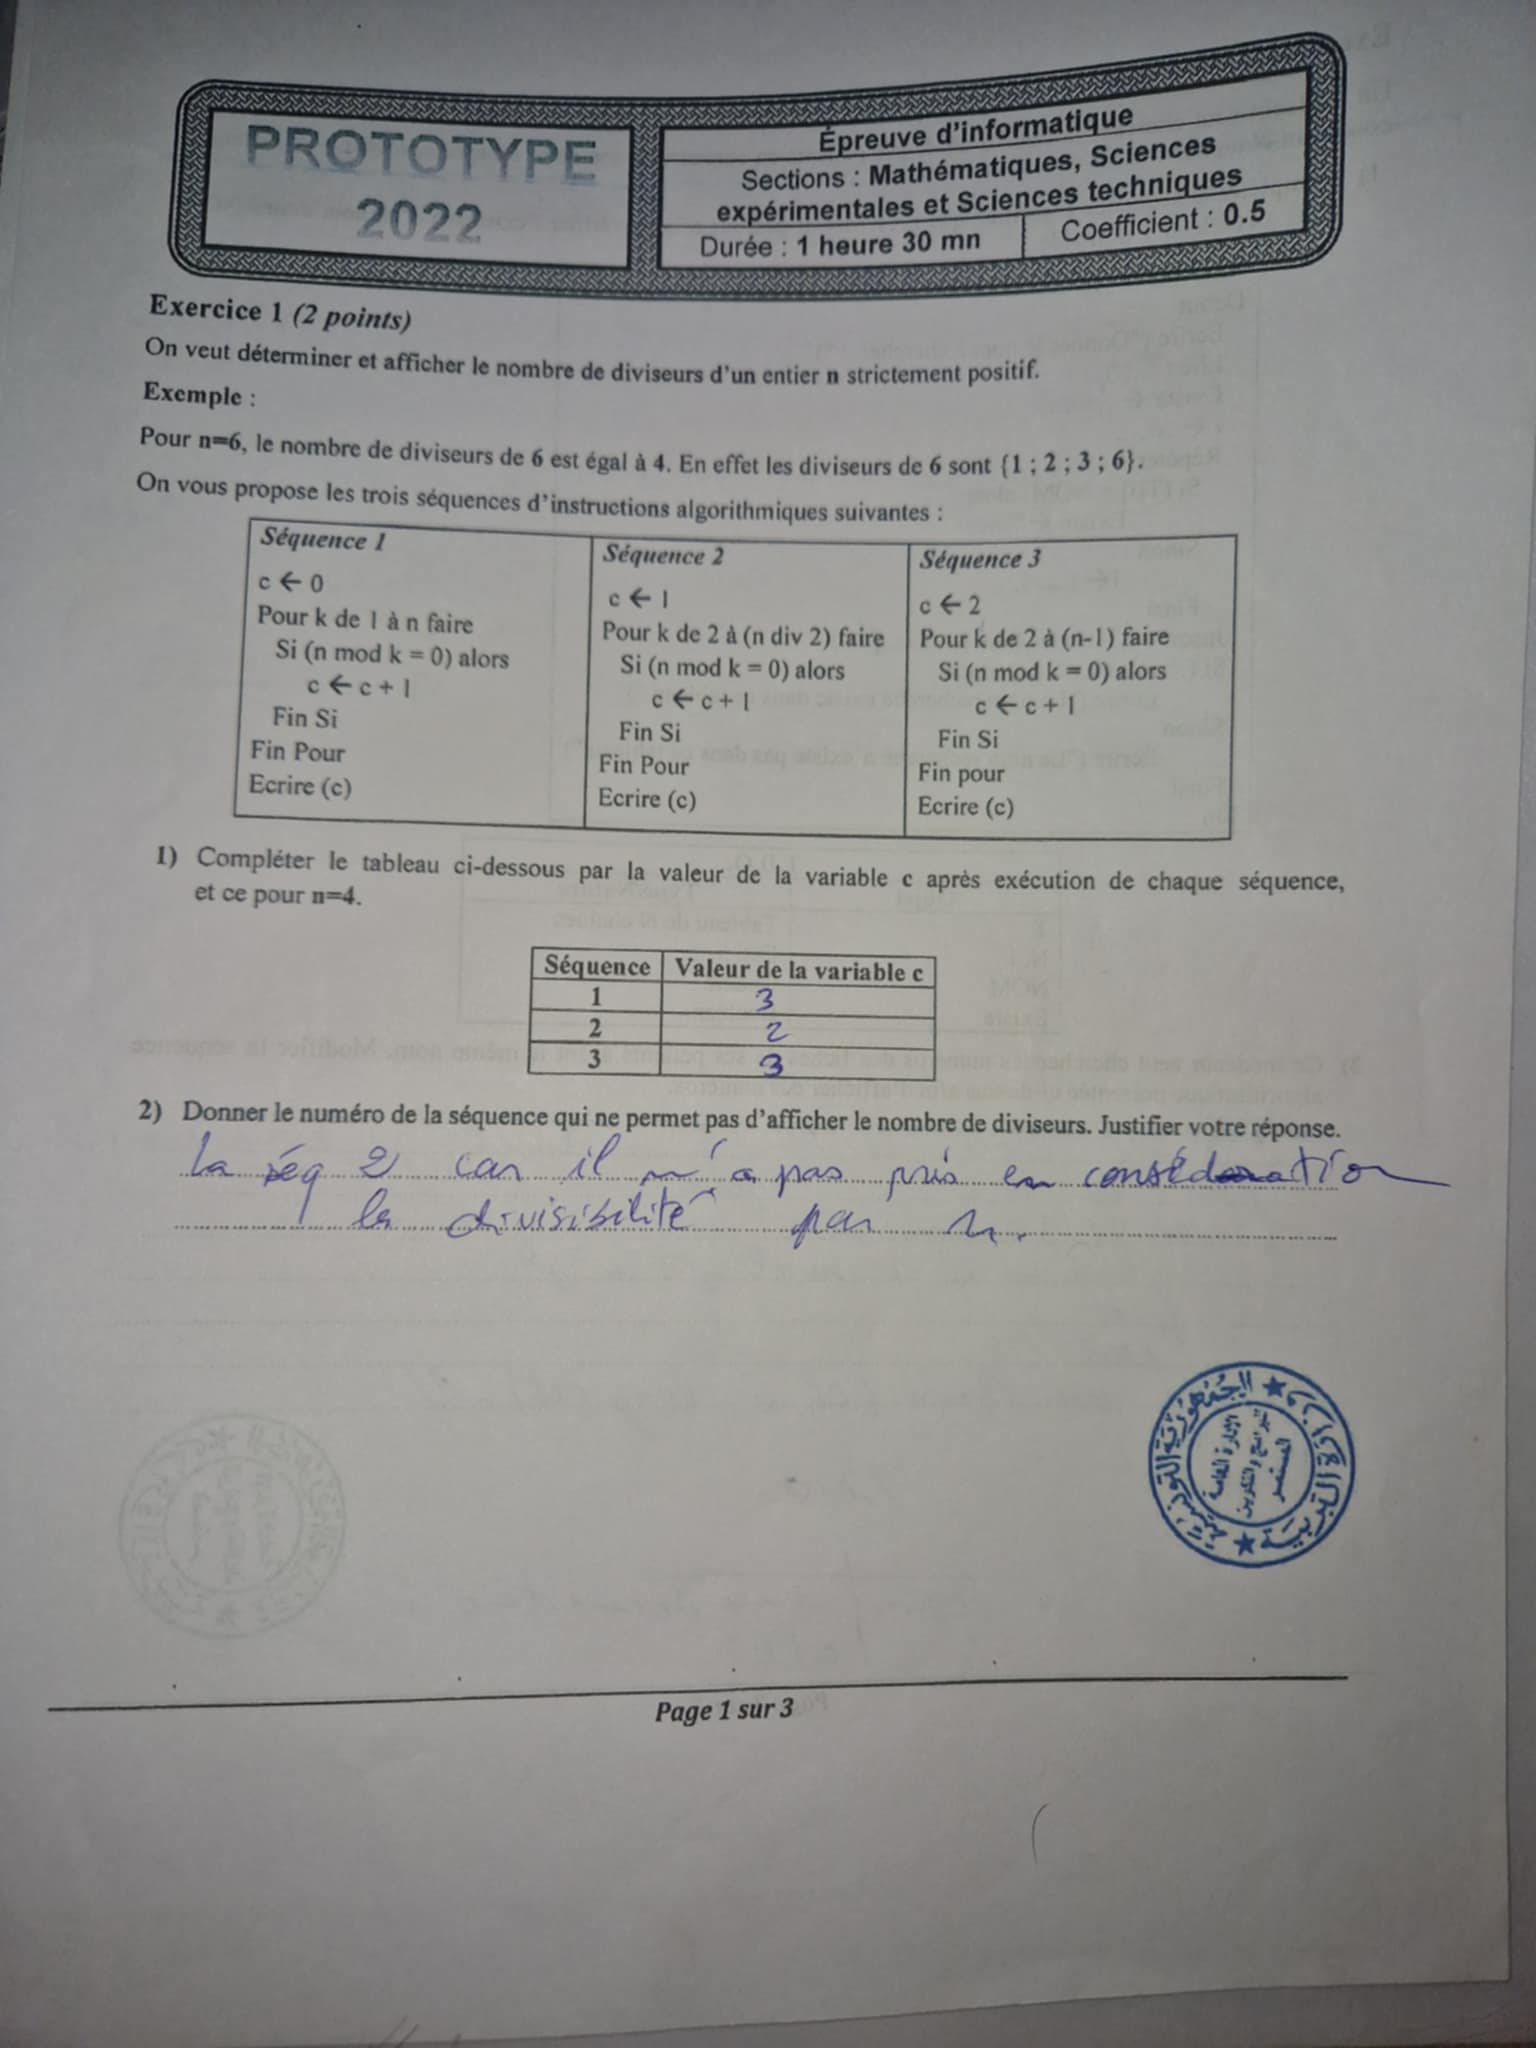 PROTOTYPE
2022
Épreuve d'informatique
Sections : Mathématiques, Sciences
expérimentales et Sciences techniques
Durée : 1 heure 30 mn
Coefficient : 0.5
Exercice 1 (2 points)
On veut déterminer et afficher le nombre de diviseurs d'un entier n strictement positif.
Exemple :
Pour n=6, le nombre de diviseurs de 6 est égal à 4. En effet les diviseurs de 6 sont {1 ; 2 ; 3 ; 6}.
On vous propose les trois séquences d'instructions algorithmiques suivantes :
Séquence 1
c ← 0
Pour k de 1 à n faire
Si (n mod k = 0) alors
c ← c + 1
Fin Si
Fin Pour
Ecrire (c)
Séquence 2
c ← 1
Pour k de 2 à (n div 2) faire
Si (n mod k = 0) alors
c ← c + 1
Fin Si
Fin Pour
Ecrire (c)
Séquence 3
c ← 2
Pour k de 2 à (n-1) faire
Si (n mod k = 0) alors
c ← c + 1
Fin Si
Fin pour
Ecrire (c)
1) Compléter le tableau ci-dessous par la valeur de la variable c après exécution de chaque séquence,
et ce pour n=4.
Séquence Valeur de la variable c
1 3
2 2
3 3
2) Donner le numéro de la séquence qui ne permet pas d'afficher le nombre de diviseurs. Justifier votre réponse.
La séq 2 car il n'a pas pris en considération
la divisibilité par n.
الجمهورية التونسية
Page 1 sur 3